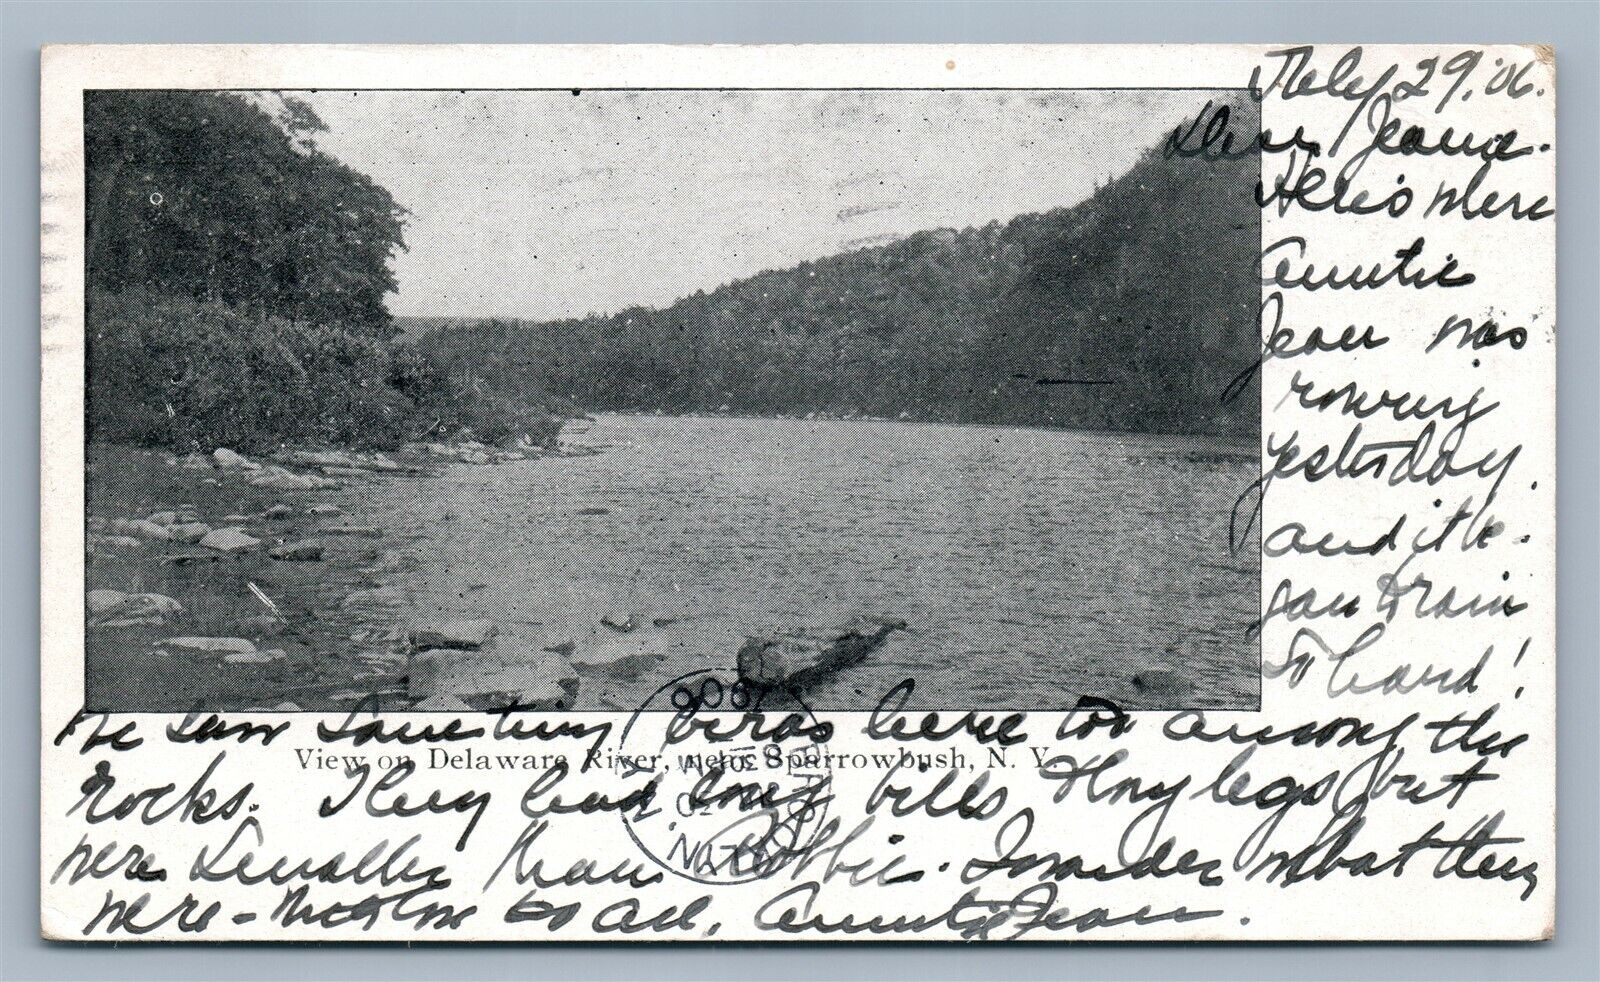 July 29, '06.
Dear Jeanie.
Here's where
Auntie
Jean was
rowing
yesterday.
and it be-
gan to rain
so hard!
We saw something birds here too among the
View on Delaware River, near Sparrowbush, N. Y.
rocks. They had long bills & long legs, but
were smaller than Robbie. I wonder what they
were - love to all, Auntie Jean.
1906
N.Y.